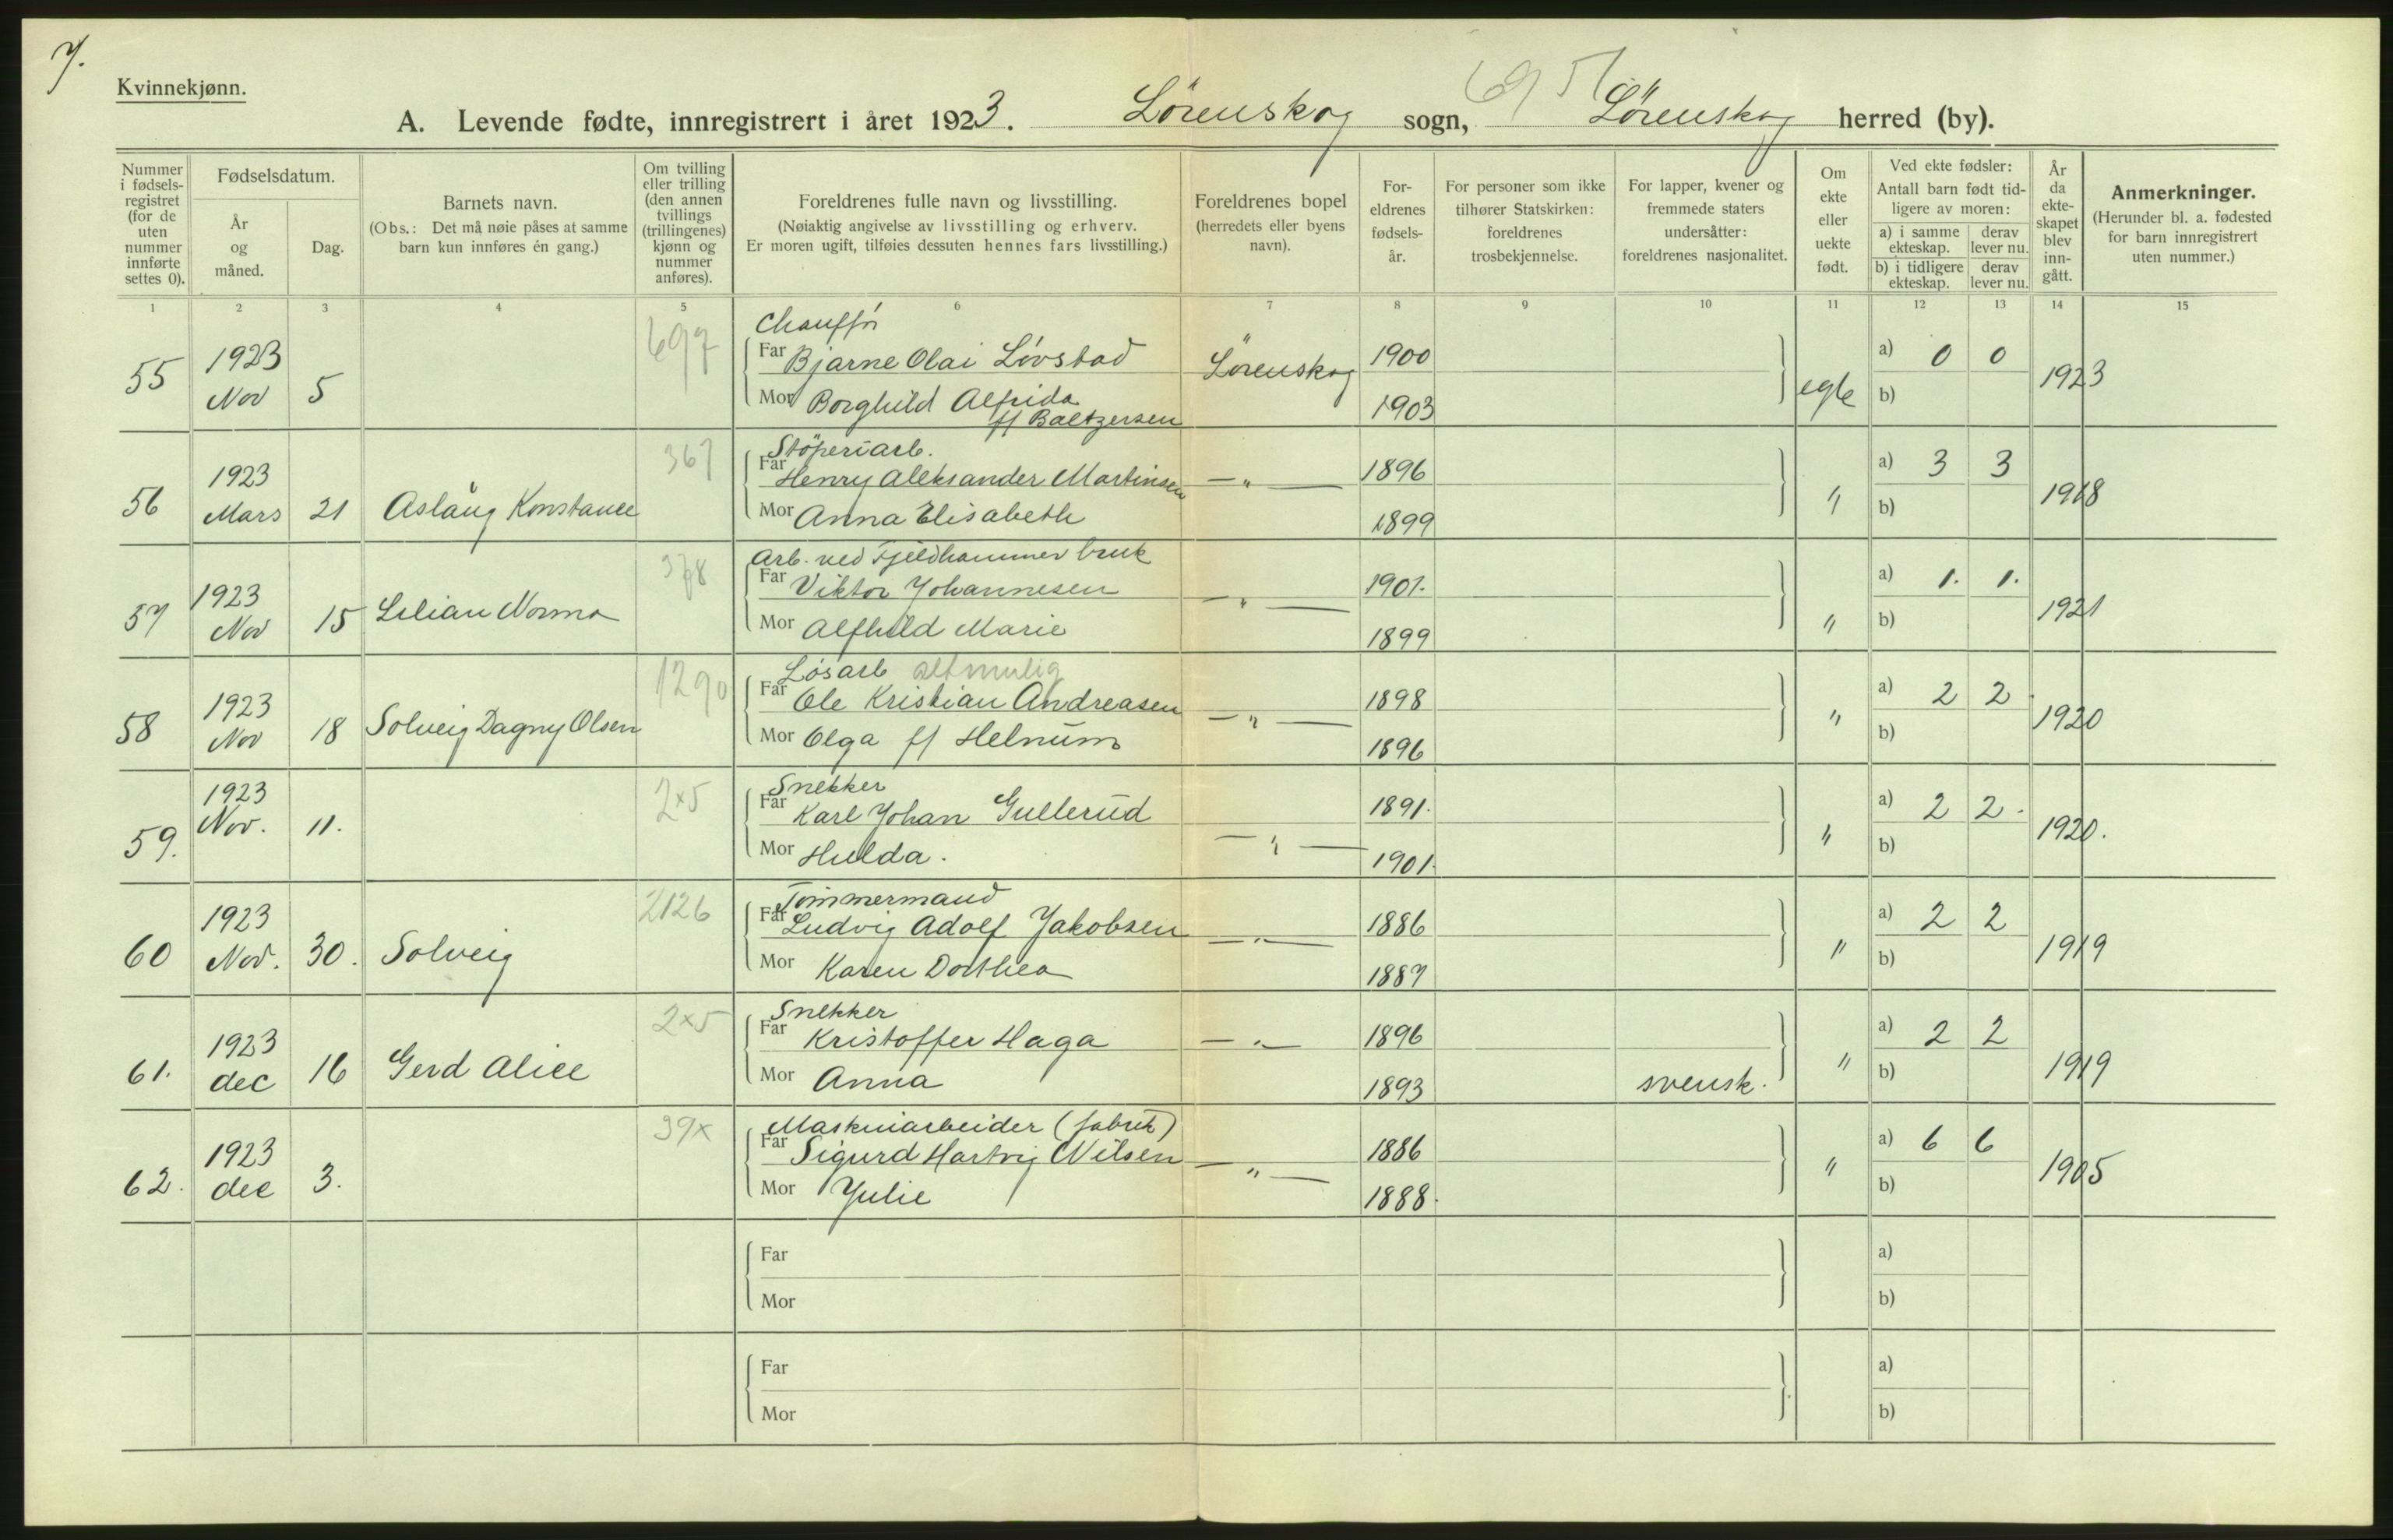 7.
Kvinnekjønn.
A. Levende fødte, innregistrert i året 1923. Lörenskog sogn, Lörenskog herred (by).
Nummer i fødsels-registret (for de uten nummer innførte settes 0).
Fødselsdatum.
År og måned.
Dag.
Barnets navn.
(Obs.: Det må nøie påses at samme barn kun innføres én gang.)
Om tvilling eller trilling (den annen tvillings (trillingenes) kjønn og nummer anføres).
Foreldrenes fulle navn og livsstilling.
(Nøiaktig angivelse av livsstilling og erhverv.
Er moren ugift, tilføies dessuten hennes fars livsstilling.)
Foreldrenes bopel (herredets eller byens navn).
For-eldrenes fødsels-år.
For personer som ikke tilhører Statskirken: foreldrenes trosbekjennelse.
For lapper, kvener og fremmede staters undersåtter: foreldrenes nasjonalitet.
Om ekte eller uekte født.
Ved ekte fødsler:
Antall barn født tid-ligere av moren:
a) i samme ekteskap.
derav lever nu.
b) i tidligere ekteskap.
derav lever nu.
År da ekte-skapet blev inn-gått.
Anmerkninger.
(Herunder bl. a. fødested for barn innregistrert uten nummer.)
1 2 3 4 5 6 7 8 9 10 11 12 13 14 15
697 Chaufför
55 1923 Nov 5 Far Bjarne Olai Lövstad Lörenskog 1900 egte a) 0 0 1923
Mor Borghild Alfrida f/ Baltzersen 1903 b)
367 Stöperiarb.
56 1923 Mars 21 Aslaug Konstance Far Henry Aleksander Martinsen — " — 1896 " a) 3 3 1918
Mor Anna Elisabeth 1899 b)
378 Arb. ved Fjeldhammer bruk
57 1923 Nov 15 Lilian Norma Far Viktor Johannesen — " — 1901. " a) 1. 1. 1921
Mor Alfhild Marie 1899 b)
1290 Lösarb altmulig
58 1923 Nov 18 Solveig Dagny Olsen Far Ole Kristian Andreasen — " — 1898 " a) 2 2 1920
Mor Olga f/ Helnum 1896 b)
2x5 Snekker
59. 1923 Nov. 11. Far Karl Johan Gullerud — " — 1891. " a) 2 2. 1920.
Mor Hulda. 1901. b)
2126 Tömmermand
60 1923 Nov. 30. Solveig Far Ludvig Adolf Jakobsen — " — 1886 " a) 2 2 1919
Mor Karen Dorthea 1887 b)
2x5 Snekker
61. 1923 dec 16 Gerd Alice Far Kristoffer Haga — " — 1896 " a) 2 2 1919
Mor Anna 1893 svensk. b)
39x Maskinarbeider (fabrik)
62. 1923 dec 3. Far Sigurd Hartvig Nilsen — " — 1886 " a) 6 6 1905
Mor Julie 1888. b)
Far a)
Mor b)
Far a)
Mor b)